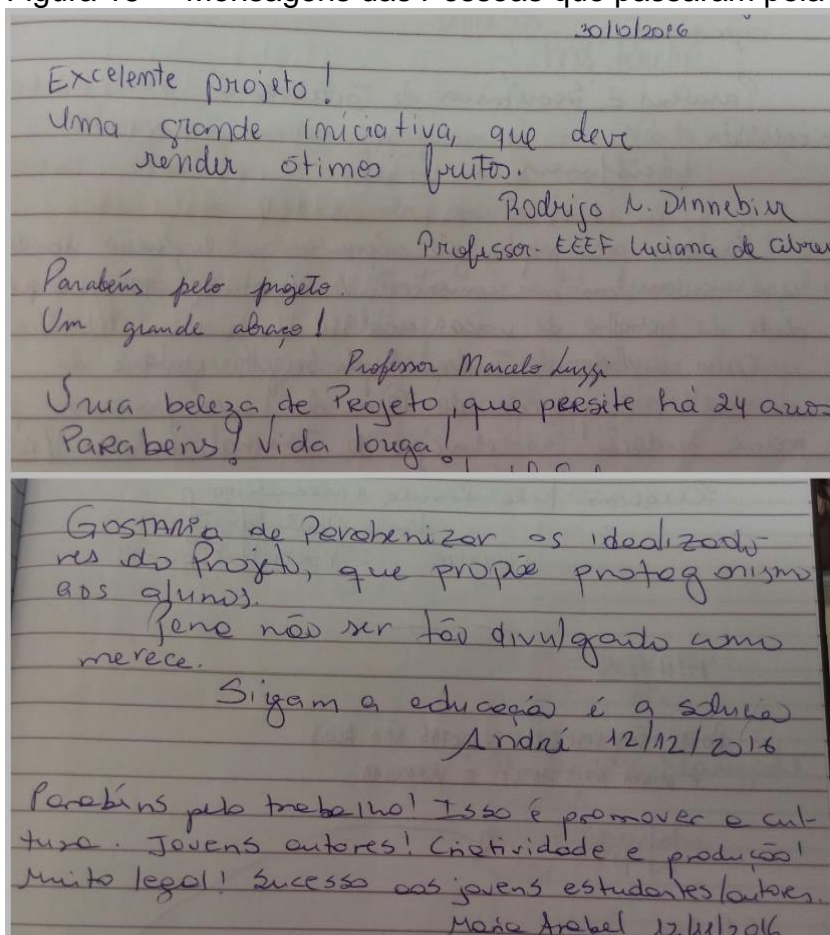 Mensagens das Pessoas que passaram pela
30/10/2016
Excelente projeto!
Uma grande iniciativa, que deve
render ótimos frutos.
Rodrigo N. Dinnebier
Professor - EEEF Luciana de Abreu
Parabéns pelo projeto.
Um grande abraço!
Professor Marcelo Luzzi
Uma beleza de Projeto, que persite há 24 anos
Parabéns! Vida longa!
Gostaria de Parabenizar os idealizado-
res do Projeto, que propõe protagonismo
aos alunos.
Pena não ser tão divulgado como
merece.
Sigam a educação é a solução
André 12/12/2016
Parabéns pelo trabalho! Isso é promover a cul-
tura. Jovens autores! Criatividade e produção!
Muito legal! Sucesso aos jovens estudantes/autores.
Maria Arabel 12/11/2016